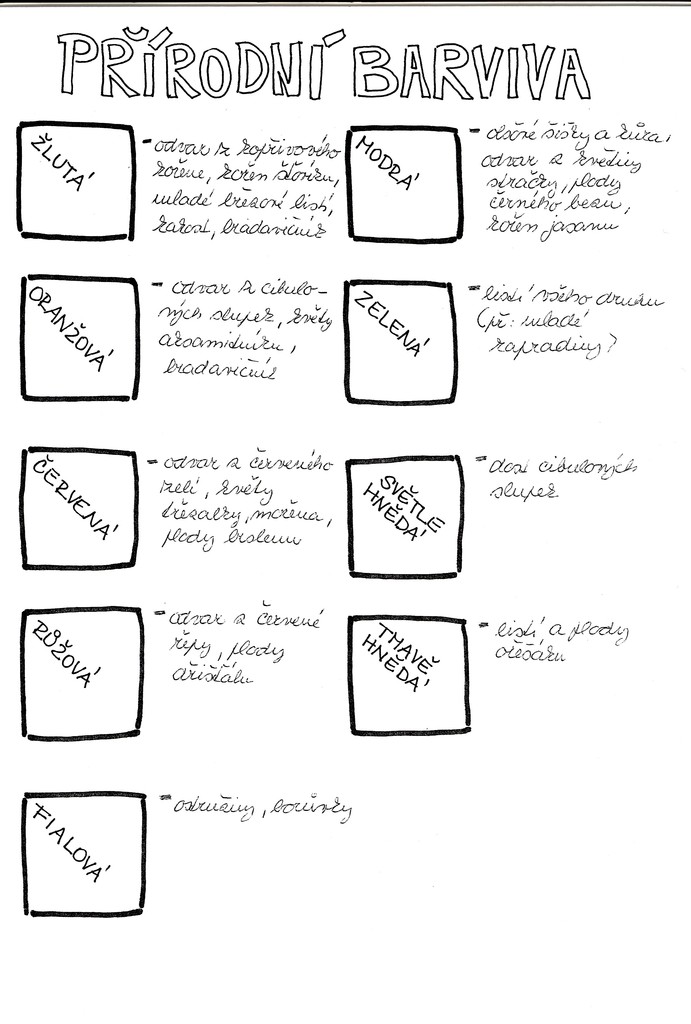 PŘÍRODNÍ BARVIVA
ŽLUTÁ
- odvar z kopřivového
kořene, kořen šťovíku,
mladé březové listí,
kakost, bradavičník
ORANŽOVÁ
- odvar z cibulo-
vých slupek, květy
aksamitníku,
bradavičník
ČERVENÁ
- odvar z červeného
zelí, květy
třezalky, mořena,
plody brslenu
RŮŽOVÁ
- odvar z červené
řepy, plody
dřišťálu
FIALOVÁ
- ostružiny, borůvky
MODRÁ
- olšové šišky a kůra,
odvar z květiny
stračky, plody
černého bezu,
kořen jasanu
ZELENÁ
- listí všeho druhu
(př: mladé
kapradiny)
SVĚTLE
HNĚDÁ
- dost cibulových
slupek
TMAVĚ
HNĚDÁ
- listí a plody
ořešáku